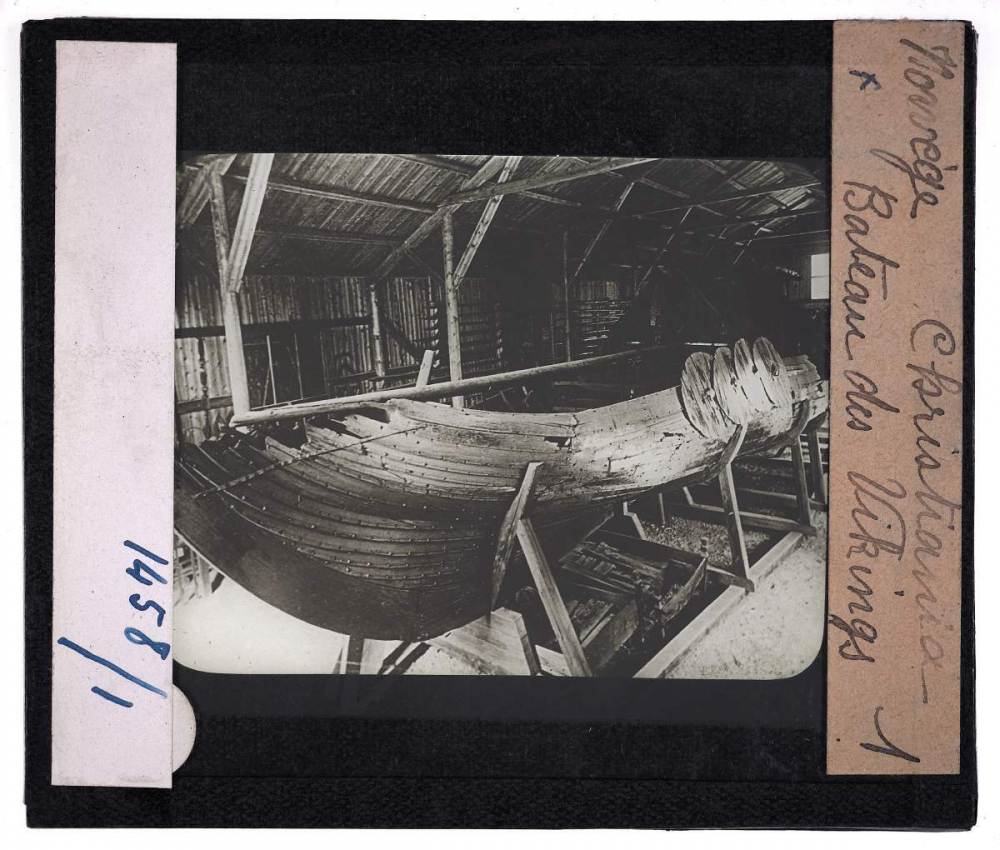 Norvège Christiania
x Bateau des Vikings 1
1458/1